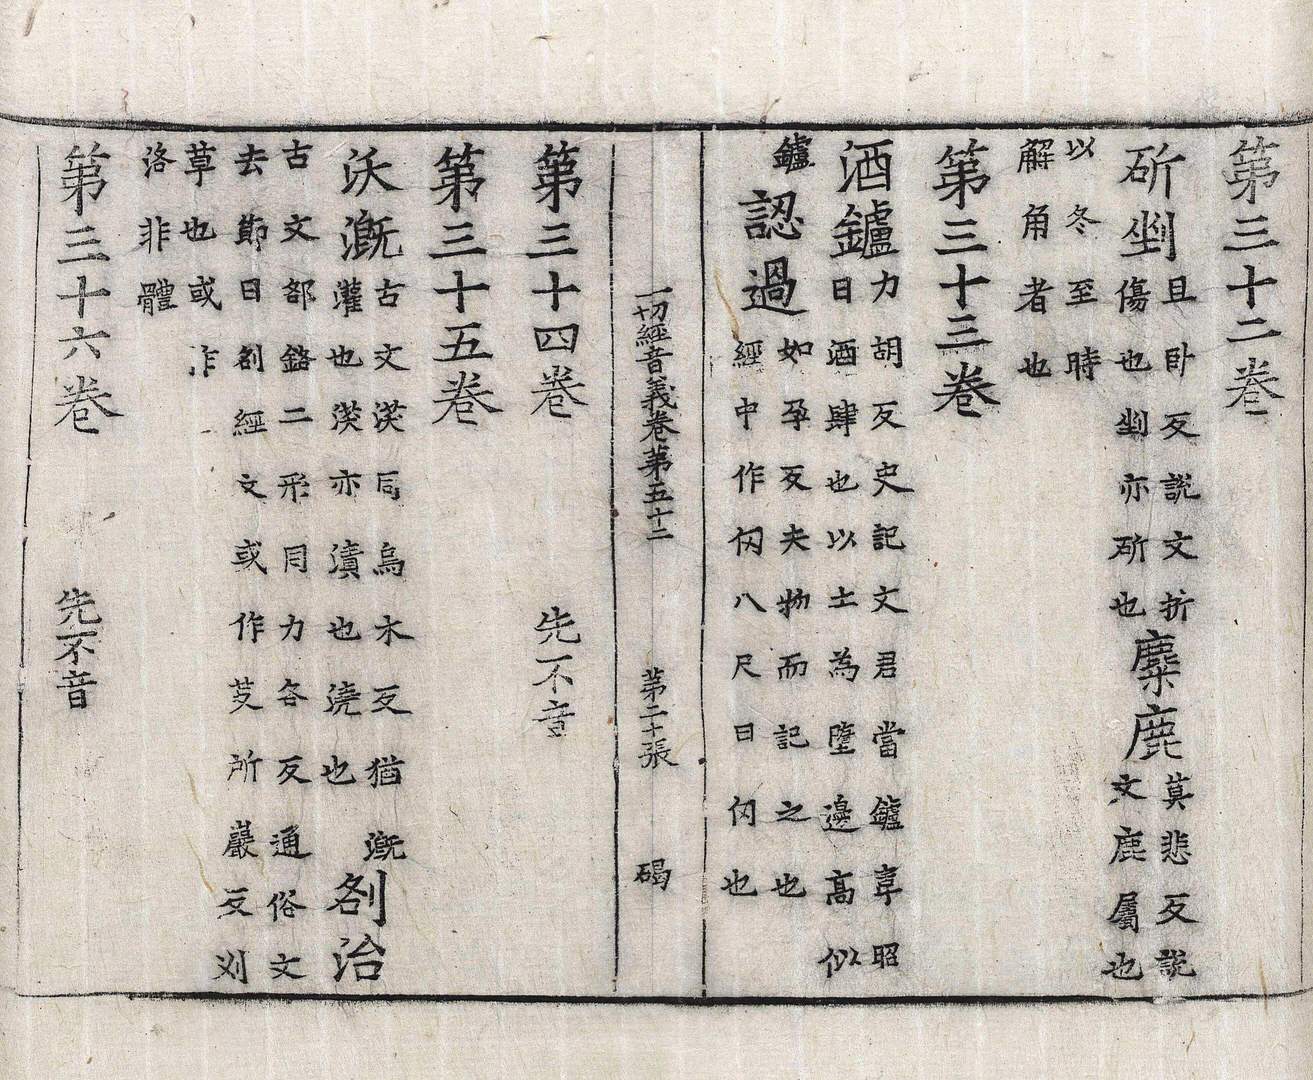 第三十二卷
斫剉
且卧反說文折
傷也剉亦斫也
麋鹿
莫悲反說
文鹿屬也
以冬至時
解角者也
第三十三卷
酒鑪
力胡反史記文君當鑪韋昭
曰酒肆也以土為墮邊高似
鑪
認過
如孕反夫物而記之也
經中作仞八尺曰仞也
一切經音義卷第五十二 第二十張 碣
第三十四卷 先不音
第三十五卷
沃溉
古文渶同烏木反猶溉
灌也渶亦漬也澆也
剖治
古文部鉻二形同力各反通俗文
去節曰剖經文或作芟所巖反刈
草也或作
洛非體
第三十六卷 先不音